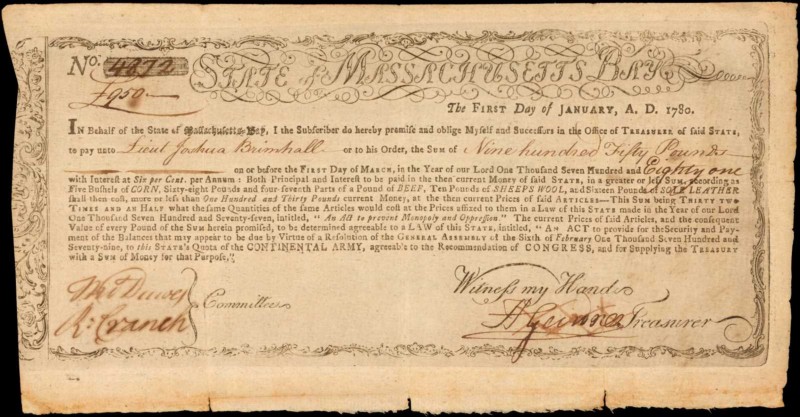 No. 4872 STATE of MASSACHUSETTS BAY
£950
The FIRST Day of JANUARY, A. D. 1780.
IN Behalf of the State of Massachusetts-Bay, I the Subscriber do hereby promise and oblige Myself and Successors in the Office of TREASURER of said STATE,
to pay unto Lieut Joshua Brimhall or to his Order, the SUM of Nine hundred Fifty Pounds
on or before the FIRST Day of MARCH, in the Year of our Lord One Thousand Seven Hundred and Eighty one
with Interest at Six per Cent. per Annum: Both Principal and Interest to be paid in the then current Money of said STATE, in a greater or less SUM, according as
Five Bushels of CORN, Sixty-eight Pounds and four-seventh Parts of a Pound of BEEF, Ten Pounds of SHEEPS WOOL, and Sixteen Pounds of SOLE LEATHER
shall then cost, more or less than One Hundred and Thirty Pounds current Money, at the then current Prices of said ARTICLES—This SUM being THIRTY TWO
TIMES AND AN HALF what the same Quantities of the same Articles would cost at the Prices affixed to them in a Law of this STATE made in the Year of our Lord
One Thousand Seven Hundred and Seventy-seven, intitled, "An ACT to prevent Monopoly and Oppression." The current Prices of said Articles, and the consequent
Value of every Pound of the SUM herein promised, to be determined agreeable to a LAW of this STATE, intitled, "AN ACT to provide for the Security and Pay-
ment of the Balances that may appear to be due by Virtue of a Resolution of the GENERAL ASSEMBLY of the Sixth of February One Thousand Seven Hundred and
Seventy-nine, to this STATE's Quota of the CONTINENTAL ARMY, agreeable to the Recommendation of CONGRESS, and for Supplying the TREASURY
with a SUM of Money for that Purpose."
Witness my Hand
Thos Dawes
Committee
R: Cranch
H Gardner Treasurer